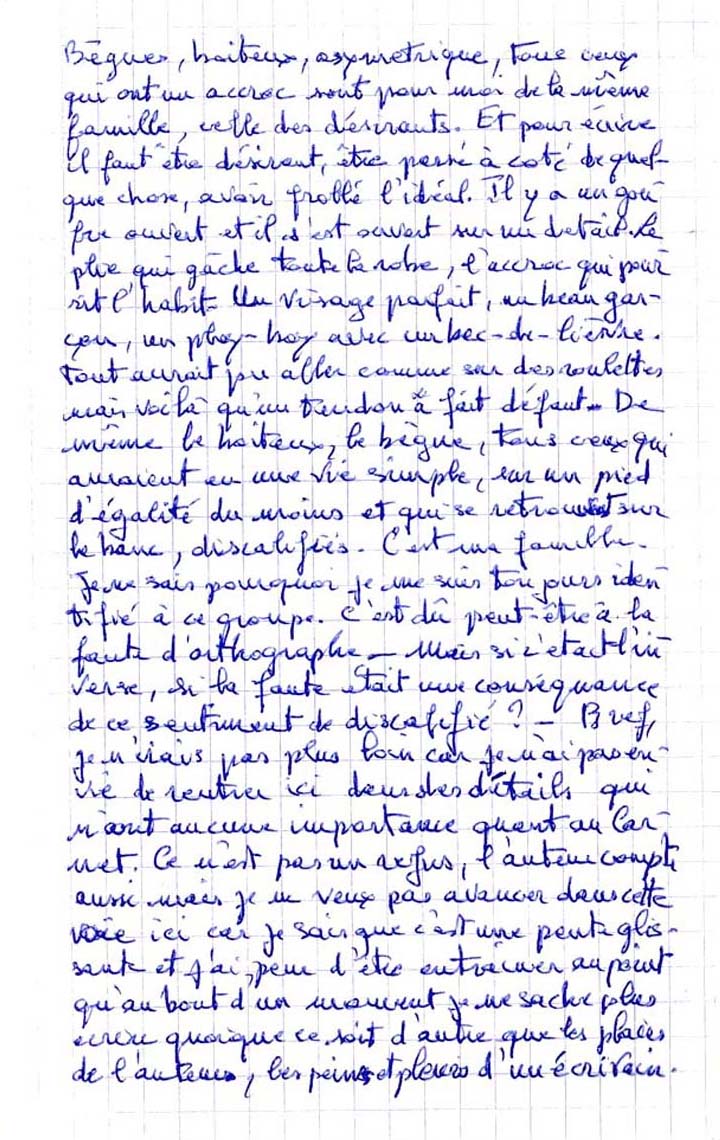 Bègues, boiteux, asymetrique, tous ceux
qui ont un accroc sont pour moi de la même
famille, celle des désirants. Et pour écrire
il faut être désirant, être passé à coté de quel-
que chose, avoir frollé l'idéal. Il y a un gou
fre ouvert et il s'est ouvert sur un detail. Le
plie qui gâche toute la robe, l'accroc qui pour
rit l'habit. Un visage parfait, un beau gar-
çon, un play-boy avec un bec-de-lièvre.
Tout aurait pu aller comme sur des roulettes
mais voilà qu'un tendon a fait défaut. De
même le boiteux, le bègue, tous ceux qui
auraient eu une vie simple, sur un pied
d'égalité du moins et qui se retrouvent sur
le banc, discalifiés. C'est ma famille.
Je ne sais pourquoi je me suis toujours iden
tifié à ce groupe. C'est dû peut-être à la
faute d'orthographe - Mais si c'était l'in
verse, si la faute était une conséquance
de ce sentiment de discalifié ? - Bref,
je n'irais pas plus loin car je n'ai pas en-
vie de rentrer ici dans des détails qui
n'ont aucune importance quant au Car-
net. Ce n'est pas un refus, l'auteur compte
aussi mais je ne veux pas avancer dans cette
voie ici car je sais que c'est une pente glis-
sante et j'ai peur d'être entraîner au point
qu'au bout d'un moment je ne sache plus
écrire quoique ce soit d'autre que les plaies
de l'auteur, les peines et pleurs d'un écrivain.